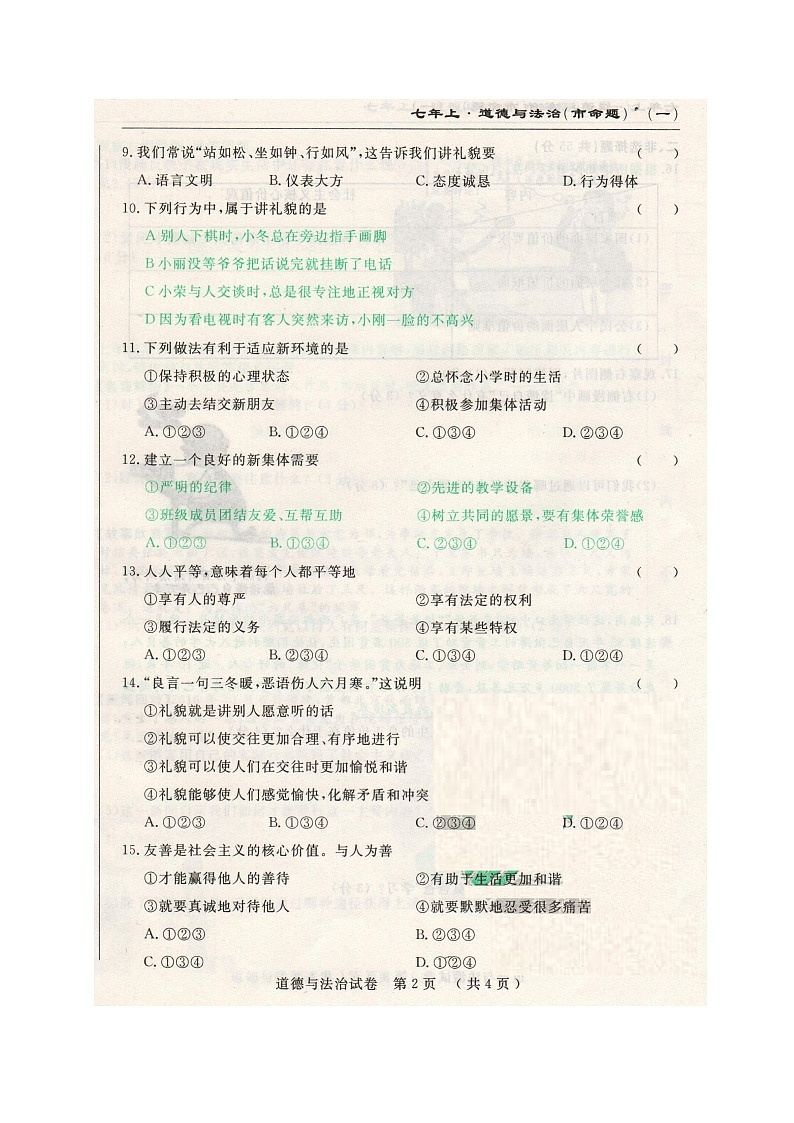 七年上·道德与法治(市命题) (一)
9.我们常说“站如松、坐如钟、行如风”,这告诉我们讲礼貌要 ( )
A.语言文明 B.仪表大方 C.态度诚恳 D.行为得体
10.下列行为中,属于讲礼貌的是 ( )
A 别人下棋时,小冬总在旁边指手画脚
B 小丽没等爷爷把话说完就挂断了电话
C 小荣与人交谈时,总是很专注地正视对方
D 因为看电视时有客人突然来访,小刚一脸的不高兴
11.下列做法有利于适应新环境的是 ( )
①保持积极的心理状态 ②总怀念小学时的生活
③主动去结交新朋友 ④积极参加集体活动
A.①②③ B.①②④ C.①③④ D.②③④
12.建立一个良好的新集体需要 ( )
①严明的纪律 ②先进的教学设备
③班级成员团结友爱、互帮互助 ④树立共同的愿景,要有集体荣誉感
A.①②③ B.①③④ C.②③④ D.①②④
13.人人平等,意味着每个人都平等地 ( )
①享有人的尊严 ②享有法定的权利
③履行法定的义务 ④享有某些特权
A.①②③ B.②③④ C.①③④ D.①②④
14.“良言一句三冬暖,恶语伤人六月寒。”这说明 ( )
①礼貌就是讲别人愿意听的话
②礼貌可以使交往更加合理、有序地进行
③礼貌可以使人们在交往时更加愉悦和谐
④礼貌能够使人们感觉愉快,化解矛盾和冲突
A.①②③ B.①③④ C.②③④ D.①②④
15.友善是社会主义的核心价值。与人为善 ( )
①才能赢得他人的善待 ②有助于生活更加和谐
③就要真诚地对待他人 ④就要默默地忍受很多痛苦
A.①②③ B.②③④
C.①③④ D.①②④
道德与法治试卷 第2页 (共4页)